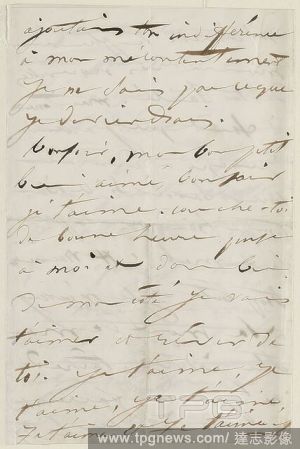 ajoutais ton indifférence
à mon mécontentement
je ne sais pas ce que
je deviendrais.
Bonsoir, mon bon petit
bien aimé, bonsoir
je t'aime. couche-toi
de bonne heure, pense
à moi et dors bien.
De mon côté je vais
t'aimer et rêver de
toi. je t'aime, je
t'aime, je t'aime,
je t'aime, je t'aime
TPG
www.tpgnews.com / 達志影像